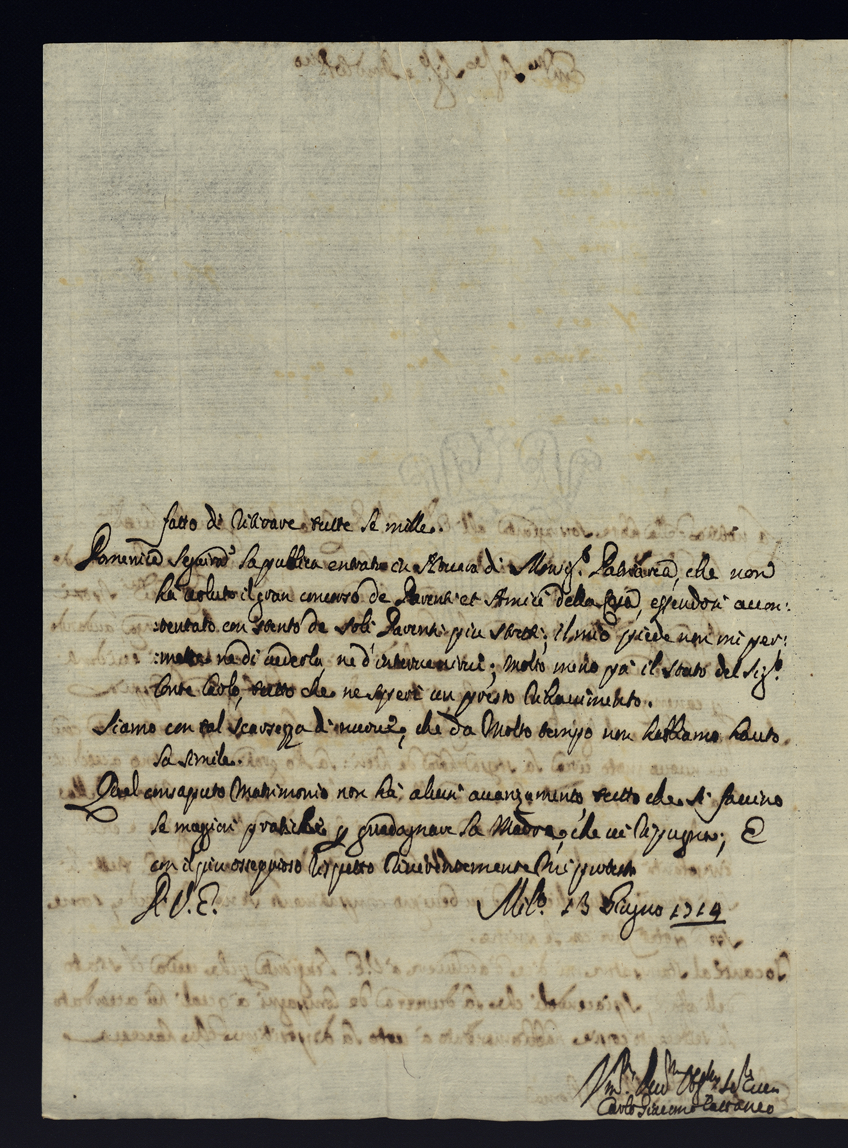 fatto di ritirare tutte le mille.
Domenica seguirà la publica entrata in di Monsig.r Patriarca, che non
ha voluto il gran concorso de Parenti et Amici della Casa, essendosi accon:
:tentato con stento de soli Parenti più stretti; il mio piede non mi per:
:mette ne di vederla, ne d'intervenirvi; molto meno poi il stato del Sig.r
Conte Carlo, tutto che ne speri un presto
Siamo con tal scarsezza di nuove, che da molto tempo non habbiamo hauto
la simile.
Qual consaputo Matrimonio non ha alcun avanzamento, tutto che si faccino
le maggiori pratiche p guadagnare la Madre, che vi repugna; E
con il più ossequioso rispetto riverentemente mi protesto
D. V. E. Mil.o 13 Giugno 1714
Carlo Giacomo Cattaneo